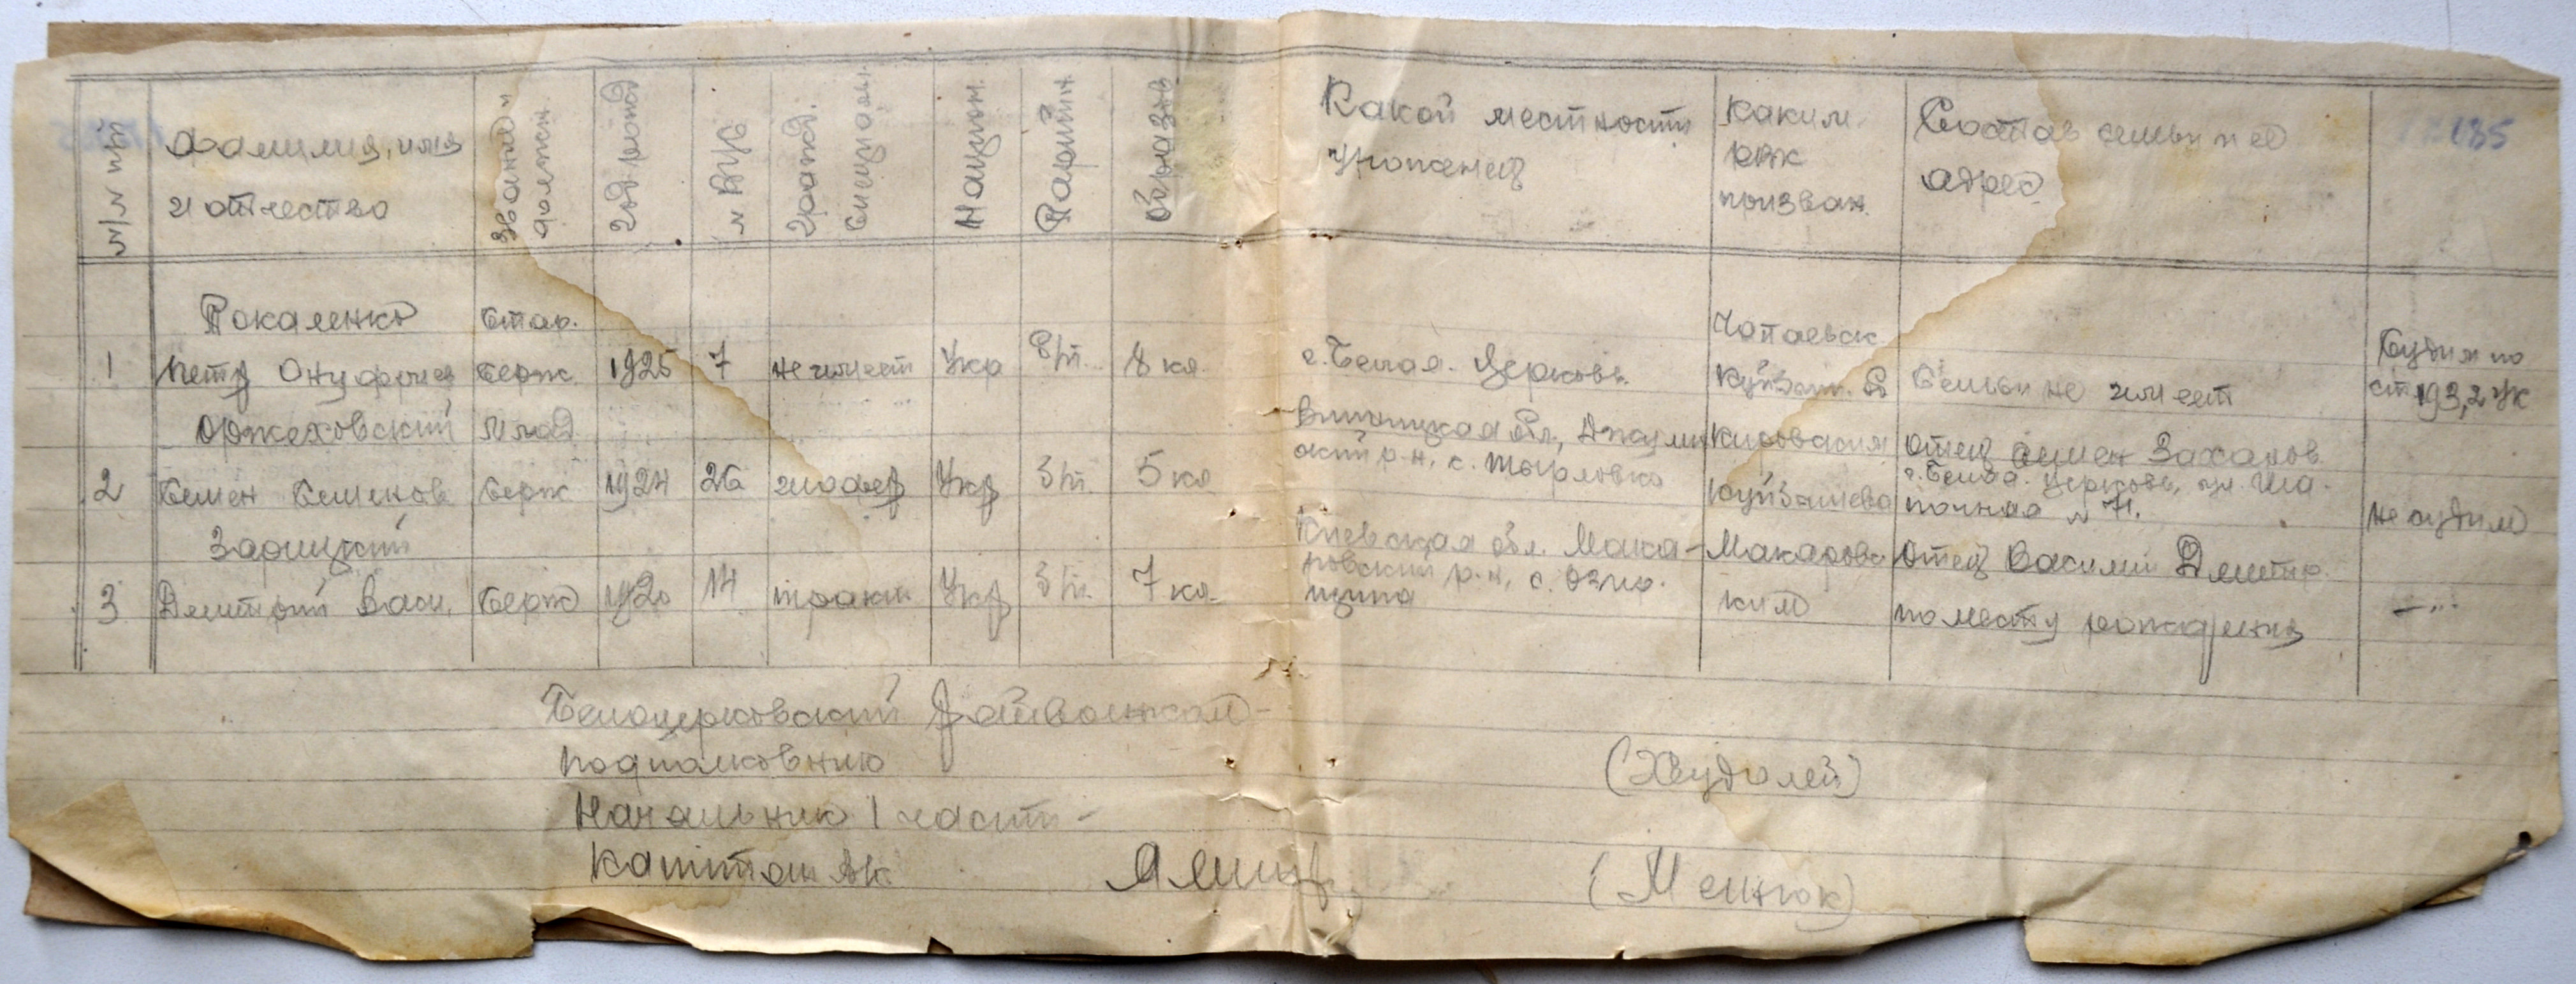 №/№ п/п
Фамилия, имя
и отчество
Звание и
должн.
Год рожд
№ ВУС
Гражд.
специальн.
Национ.
Партийн.
Образов.
Какой местности
уроженец
Каким
РВК
призван.
Состав семьи и ее
адрес
135
Стар.
1 Петр Онуфриев Серж. 1925 7 не имеет Укр б/п. 8 кл. г. Белая. Церковь. Чапаевск Семьи не имеет Судим по
ст 193,2 УК
Оржеховский Млад
2 Семен Семенов Серж 1924 26 шофер Укр б/п. 5 кл Винницкая обл, Джулин
ский р-н, с. Тырловка
Кировским
Куйбышева
отец Семен Захаров
г. Белая. Церковь, ул.
№ 71.
не судим
Зарицкий
3 Дмитрий Васи. Серж 1920 14 тракт Укр б/п. 7 кл Киевская обл. Мака-
ровский р-н, с.
Макаровс
ким
Отец Василий Дмитр.
по месту рождения
—"—
Белоцерковский Райвоенком-
подполковник
(Худолей)
Начальник 1 части-
Капитан
(Мельнюк)